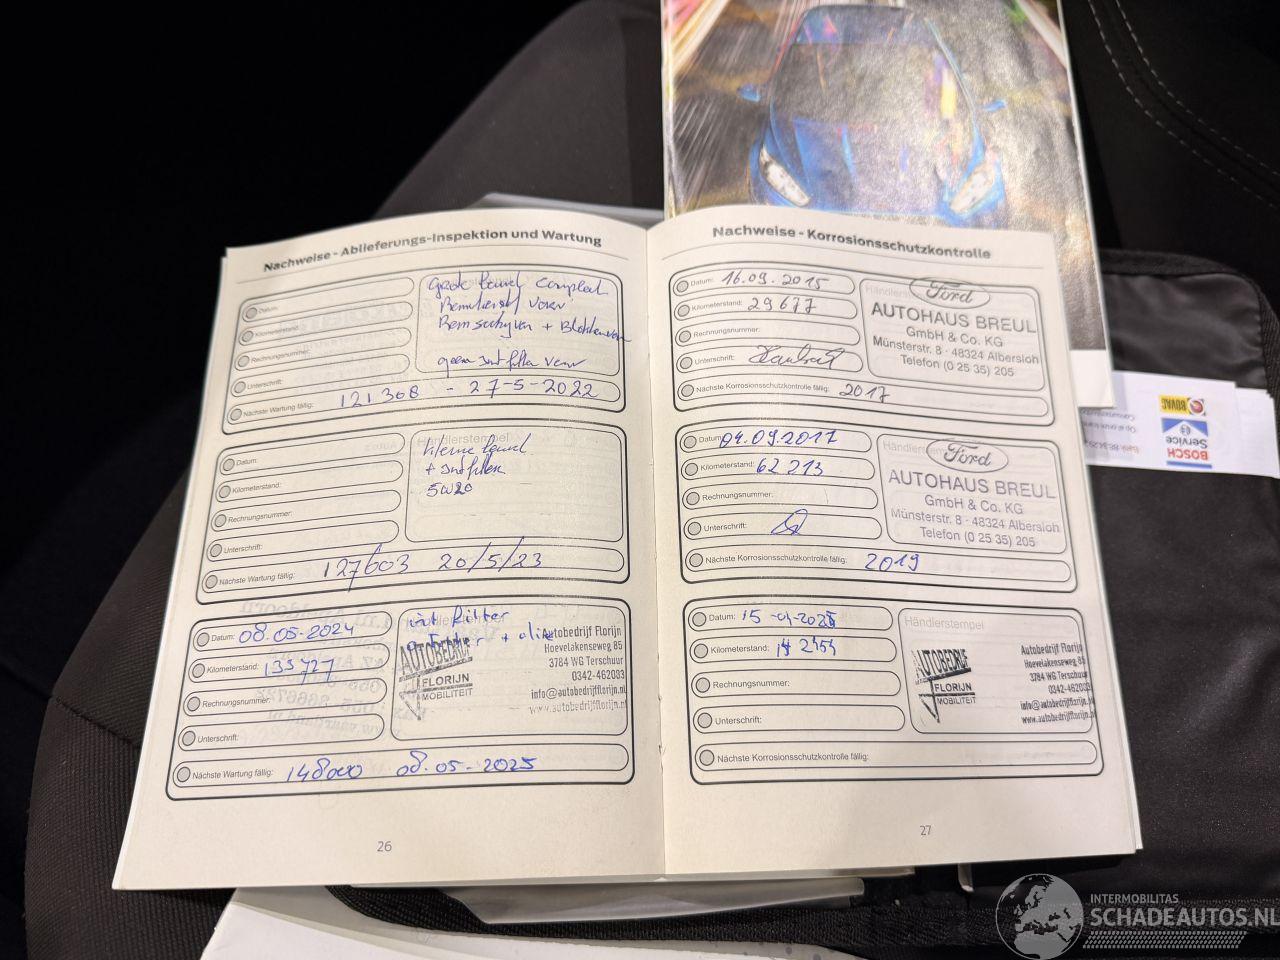 Nachweise - Ablieferungs-Inspektion und Wartung
Datum:
Kilometerstand:
Rechnungsnummer:
Unterschrift:
Grote beurt compleet
Remschijven + Blokken
Nächste Wartung fällig: 121308 - 27-5-2022
Händlerstempel
Datum:
Kilometerstand:
Rechnungsnummer:
Unterschrift:
Kleine beurt
5W20
Nächste Wartung fällig: 127603 20/5/23
Händlerstempel
Datum: 08.05-2024
Kilometerstand: 135727
Rechnungsnummer:
Unterschrift:
+ olie
AUTOBEDRIJF
FLORIJN
MOBILITEIT
Autobedrijf Florijn
Hoevelakenseweg 85
3784 WG Terschuur
0342-462033
info@autobedrijfflorijn.nl
www.autobedrijfflorijn.nl
Nächste Wartung fällig: 148000 08.05-2025
26
Nachweise - Korrosionsschutzkontrolle
Datum: 16.09.2015
Kilometerstand: 29677
Rechnungsnummer:
Unterschrift:
Nächste Korrosionsschutzkontrolle fällig: 2017
Händlerstempel
Ford
AUTOHAUS BREUL
GmbH & Co. KG
Münsterstr. 8 · 48324 Albersloh
Telefon (0 25 35) 205
Datum: 04.09.2017
Kilometerstand: 62213
Rechnungsnummer:
Unterschrift:
Nächste Korrosionsschutzkontrolle fällig: 2019
Händlerstempel
Ford
AUTOHAUS BREUL
GmbH & Co. KG
Münsterstr. 8 · 48324 Albersloh
Telefon (0 25 35) 205
Datum:
Kilometerstand:
Rechnungsnummer:
Unterschrift:
Nächste Korrosionsschutzkontrolle fällig:
Händlerstempel
AUTOBEDRIJF
FLORIJN
MOBILITEIT
Autobedrijf Florijn
Hoevelakenseweg 85
3784 WG Terschuur
0342-462033
info@autobedrijfflorijn.nl
www.autobedrijfflorijn.nl
27
BOVAG
BOSCH
Service
INTERMOBILITAS
SCHADEAUTOS.NL